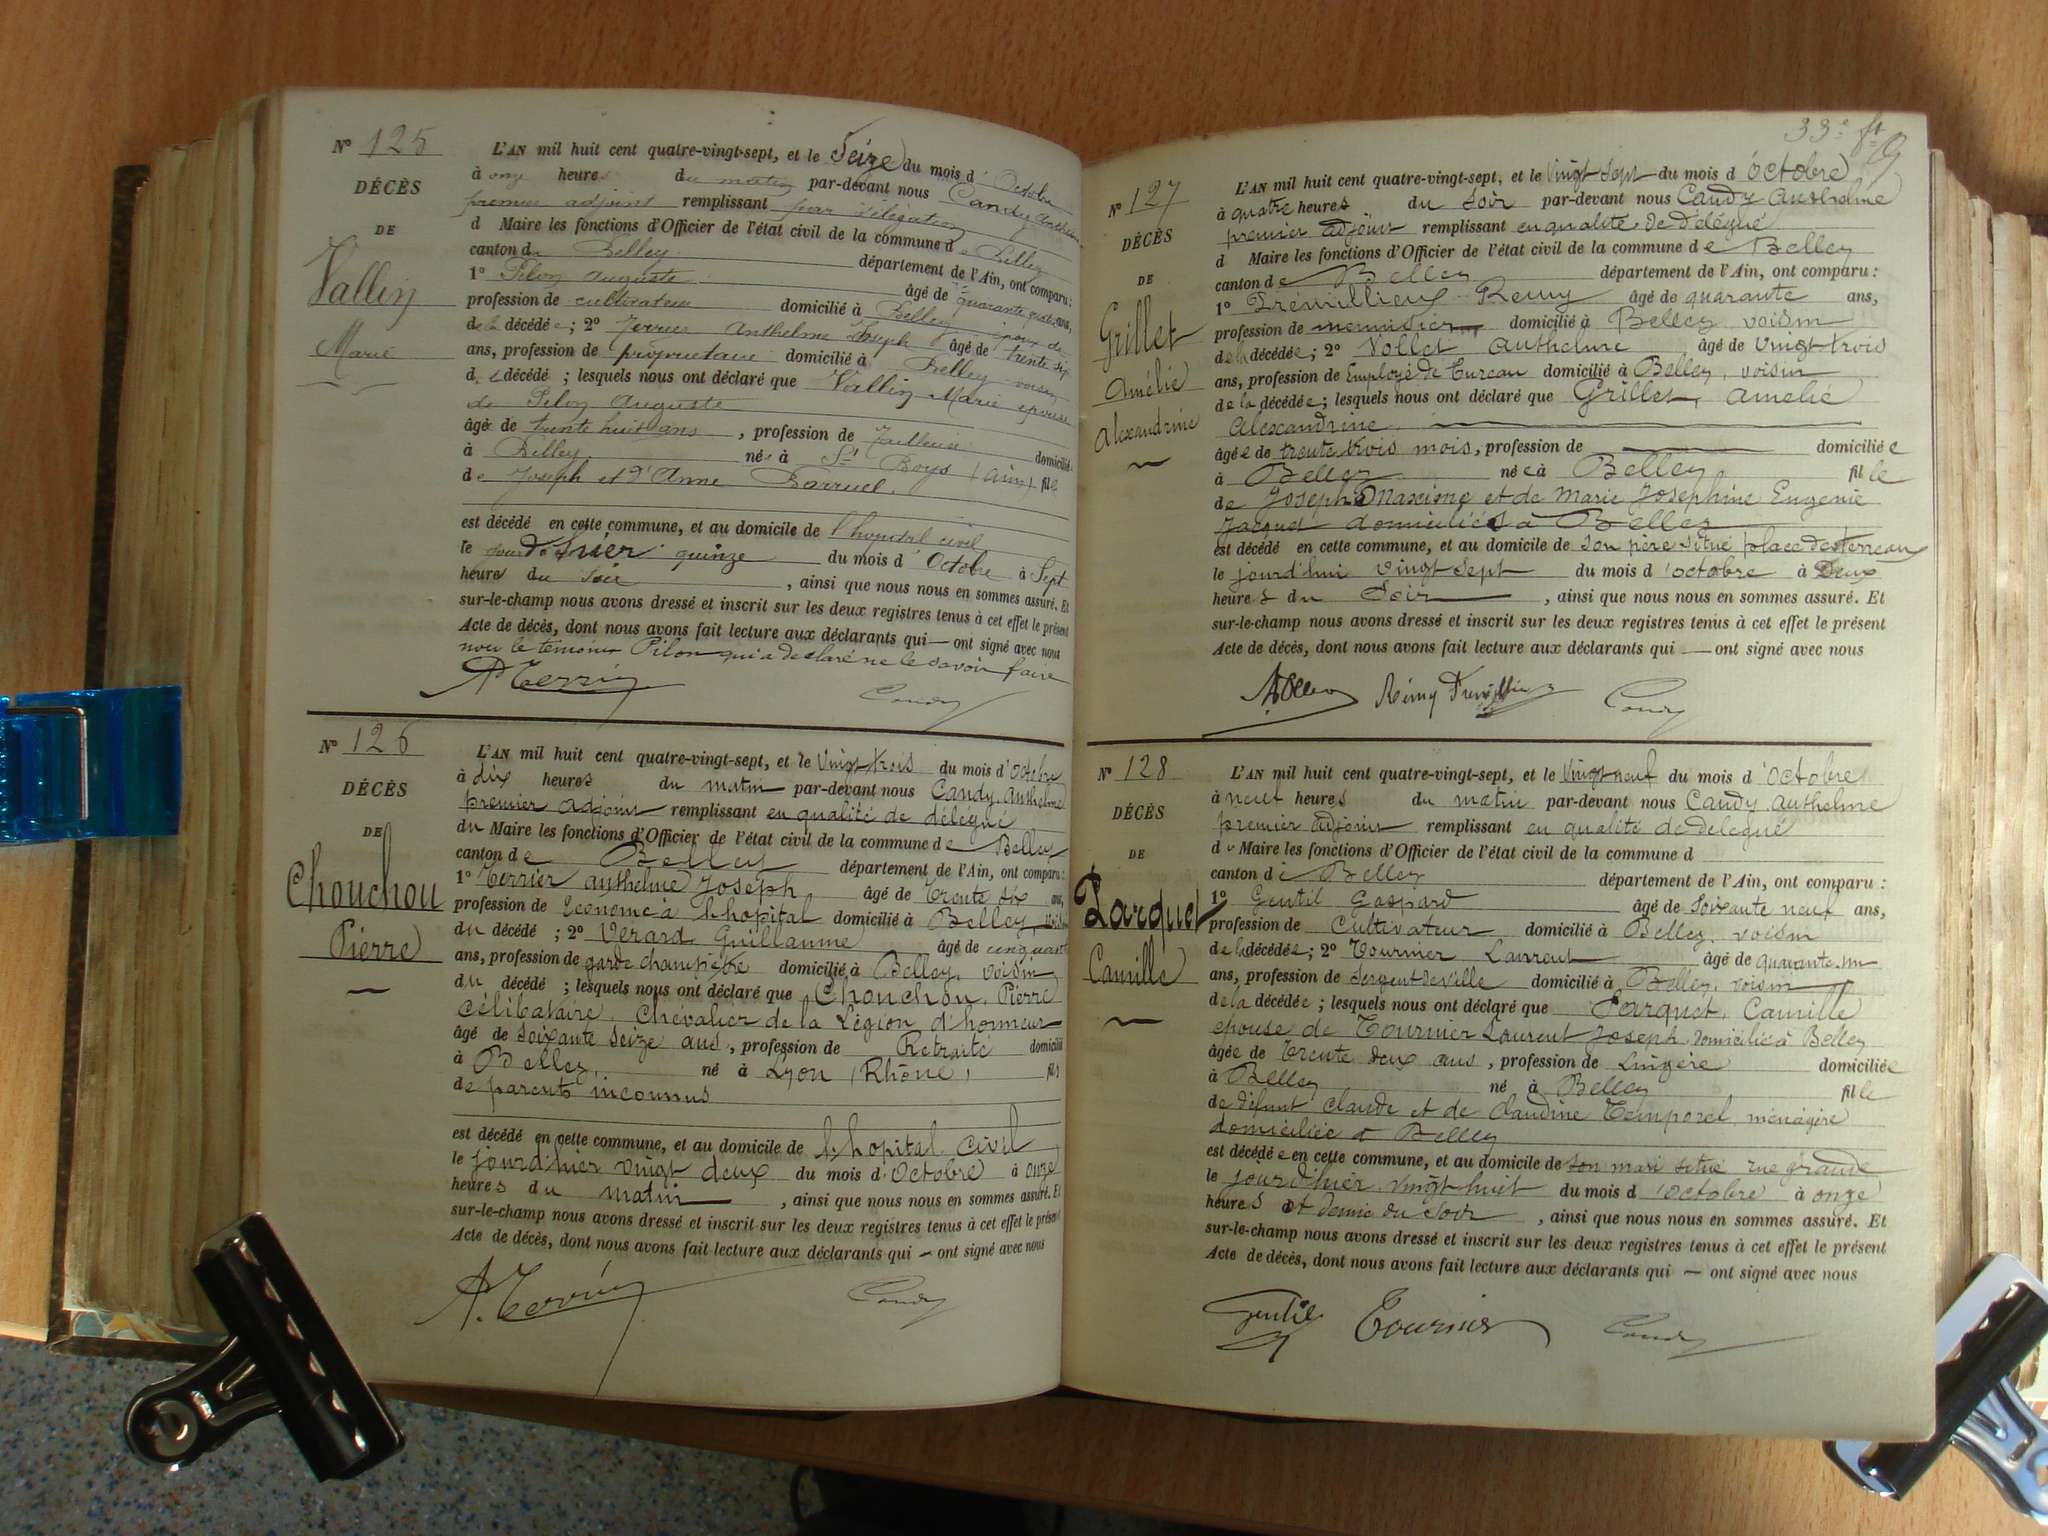 Nº 125
DÉCÈS
DE
Vallin
Marie
L'AN mil huit cent quatre-vingt-sept, et le Seize du mois d'Octobre
à onze heures du matin par-devant nous Candy Anthelme
premier adjoint remplissant par délégation
d Maire les fonctions d'Officier de l'état civil de la commune de Belley
canton de Belley département de l'Ain, ont comparu :
1º Pilon Auguste âgé de quarante quatre ans,
profession de cultivateur domicilié à Belley époux de
de la décédée ; 2º Terrier Anthelme Joseph âgé de trente six
ans, profession de propriétaire domicilié à Belley voisin
de décédé ; lesquels nous ont déclaré que Vallin Marie épouse
de Pilon Auguste
âgé de trente huit ans, profession de Tailleuse domicilié
à Belley née à St Boys (Ain) fille
de Joseph et d'Anne Barruel.
est décédé en cette commune, et au domicile de l'hopital civil
le jour d'hier quinze du mois d'Octobre à Sept
heures du soir, ainsi que nous nous en sommes assuré. Et
sur-le-champ nous avons dressé et inscrit sur les deux registres tenus à cet effet le présent
Acte de décès, dont nous avons fait lecture aux déclarants qui — ont signé avec nous
non le témoins Pilon qui a déclaré ne le savoir faire
A Terrier Candy
Nº 126
DÉCÈS
DE
Chouchou
Pierre
L'AN mil huit cent quatre-vingt-sept, et le Vingt trois du mois d'Octobre
à dix heures du matin par-devant nous Candy Anthelme
premier adjoint remplissant en qualité de délégué
du Maire les fonctions d'Officier de l'état civil de la commune de Belley
canton de Belley département de l'Ain, ont comparu :
1º Terrier Anthelme Joseph âgé de Trente six ans,
profession de Econome à l'hopital domicilié à Belley voisin
du décédé ; 2º Verard Guillaume âgé de cinquante
ans, profession de garde champêtre domicilié à Belley, voisin
du décédé ; lesquels nous ont déclaré que Chouchou, Pierre
célibataire, Chevalier de la Légion d'honneur
âgé de soixante seize ans, profession de Retraité domicilié
à Belley, né à Lyon (Rhône) fils
de parents inconnus
est décédé en cette commune, et au domicile de l'hopital civil
le jourd'hier vingt deux du mois d'Octobre à onze
heures du matin, ainsi que nous nous en sommes assuré. Et
sur-le-champ nous avons dressé et inscrit sur les deux registres tenus à cet effet le présent
Acte de décès, dont nous avons fait lecture aux déclarants qui — ont signé avec nous
A. Terrier Candy
33e ft
Nº 127
DÉCÈS
DE
Grillet
Amélie
Alexandrine
L'AN mil huit cent quatre-vingt-sept, et le Vingt sept du mois d'octobre
à quatre heures du soir par-devant nous Candy Anthelme
premier adjoint remplissant en qualité de délégué
d Maire les fonctions d'Officier de l'état civil de la commune de Belley
canton de Belley département de l'Ain, ont comparu :
1º Trémillieux Remy âgé de quarante ans,
profession de menuisier domicilié à Belley voisin
de la décédée ; 2º Vollet Anthelme âgé de vingt trois
ans, profession de Employé de bureau domicilié à Belley, voisin
de la décédée ; lesquels nous ont déclaré que Grillet, Amélie
Alexandrine
âgée de trente trois mois, profession de domiciliée
à Belley née à Belley fille
de Joseph Maxime et de Marie Josephine Eugenie
Jacquet domiciliés à Belley
est décédé en cette commune, et au domicile de son père situé place des terreaux
le jourd'hui vingt sept du mois d'octobre à Deux
heures du Soir, ainsi que nous nous en sommes assuré. Et
sur-le-champ nous avons dressé et inscrit sur les deux registres tenus à cet effet le présent
Acte de décès, dont nous avons fait lecture aux déclarants qui — ont signé avec nous
Rémy Candy
Nº 128
DÉCÈS
DE
Parquet
Camille
L'AN mil huit cent quatre-vingt-sept, et le Vingt neuf du mois d'Octobre
à neuf heures du matin par-devant nous Candy Anthelme
premier adjoint remplissant en qualité de délégué
du Maire les fonctions d'Officier de l'état civil de la commune d
canton de Belley département de l'Ain, ont comparu :
1º Gentil Gaspard âgé de Soixante neuf ans,
profession de Cultivateur domicilié à Belley, voisin
de la décédée ; 2º Tournier Laurent âgé de quarante un
ans, profession de Sergent de ville domicilié à Belley, voisin
de la décédée ; lesquels nous ont déclaré que Parquet, Camille
épouse de Tournier Laurent Joseph domicilié à Belley
âgée de Trente deux ans, profession de Lingère domiciliée
à Belley né à Belley fille
de défunt Claude et de Claudine Temporal, ménagère
domiciliée à Belley
est décédée en cette commune, et au domicile de son mari situé rue grande
le jourd'hier vingt huit du mois d'octobre à onze
heures et demie du soir, ainsi que nous nous en sommes assuré. Et
sur-le-champ nous avons dressé et inscrit sur les deux registres tenus à cet effet le présent
Acte de décès, dont nous avons fait lecture aux déclarants qui — ont signé avec nous
Gentil Tournier Candy